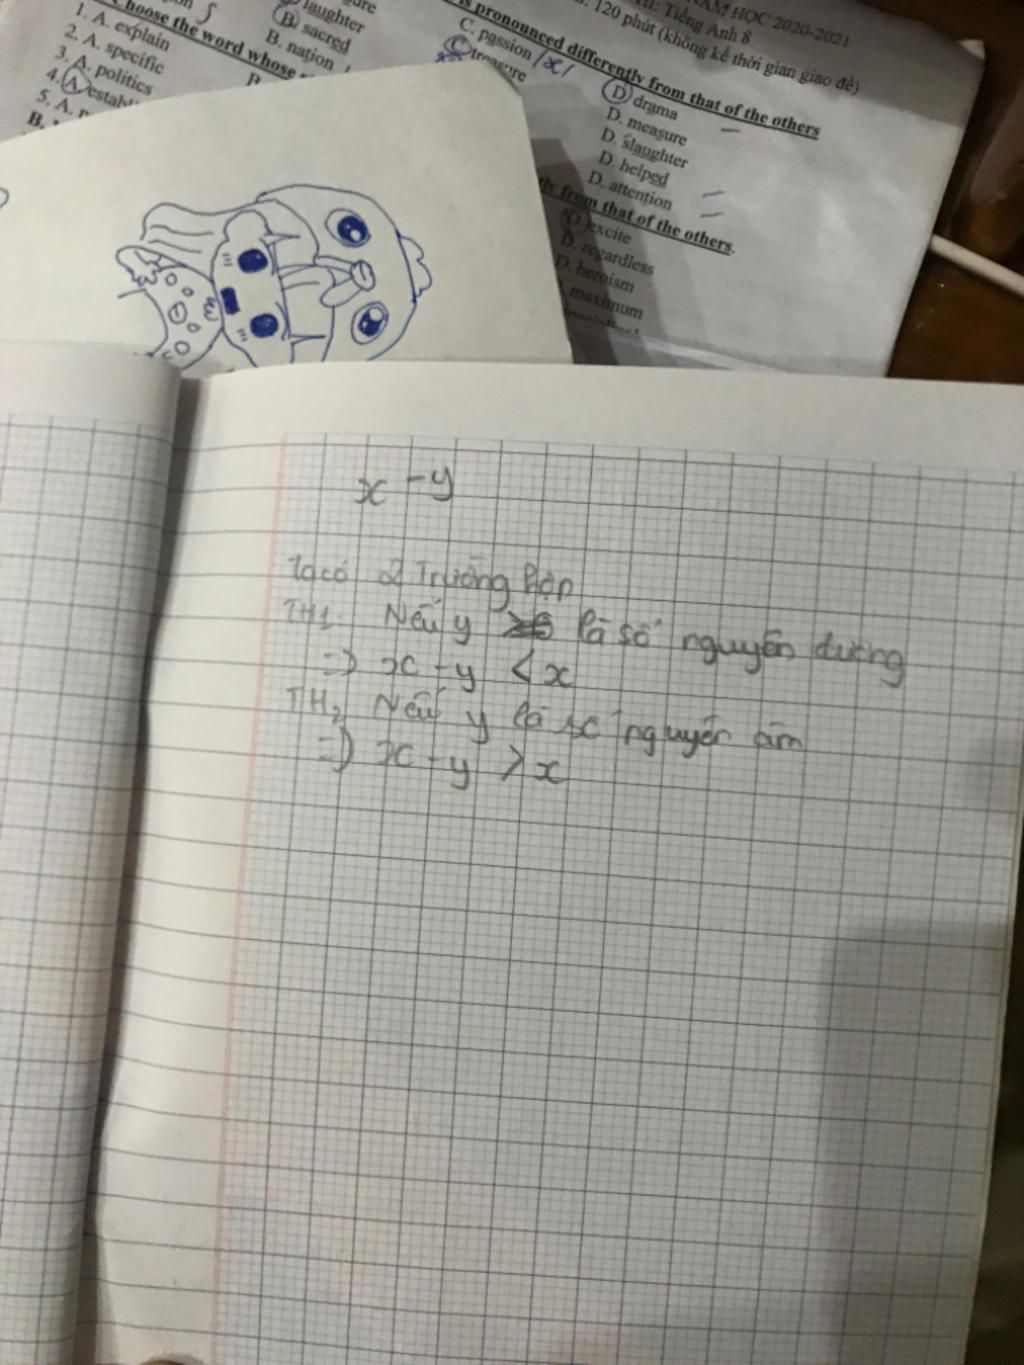 NĂM HỌC 2020-2021
Tiếng Anh 8
120 phút (không kể thời gian giao đề)
is pronounced differently from that of the others
laughter
C. passion /x/
D. drama
B. sacred
C. treasure
D. measure
B. nation
D. slaughter
D. helped
D. attention
Choose the word whose
from that of the others.
1. A. explain
D. excite
2. A. specific
D. regardless
3. A. politics
D. heroism
4. A.
maximum
5. A.
B.
x - y
Ta có 2 Trường hợp
TH1. Nếu y là số nguyên dương
=> x - y < x
TH2 Nếu y là số nguyên âm
=> x - y > x